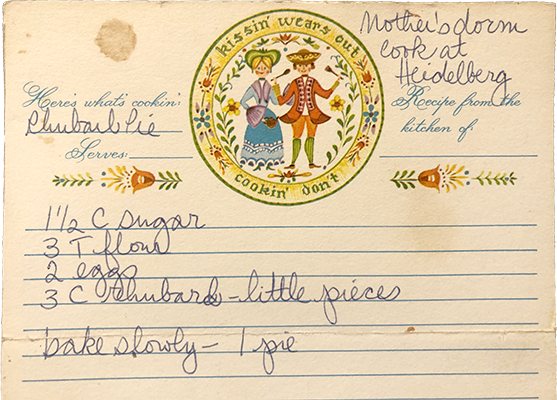 kissin' wears out
cookin' don't
Mother's dorm
cook at
Heidelberg
Here's what's cookin:
Rhubarb Pie
Recipe from the
kitchen of:
Serves:
1 1/2 C sugar
3 T flour
2 eggs
3 C rhubarb - little pieces
bake slowly - 1 pie